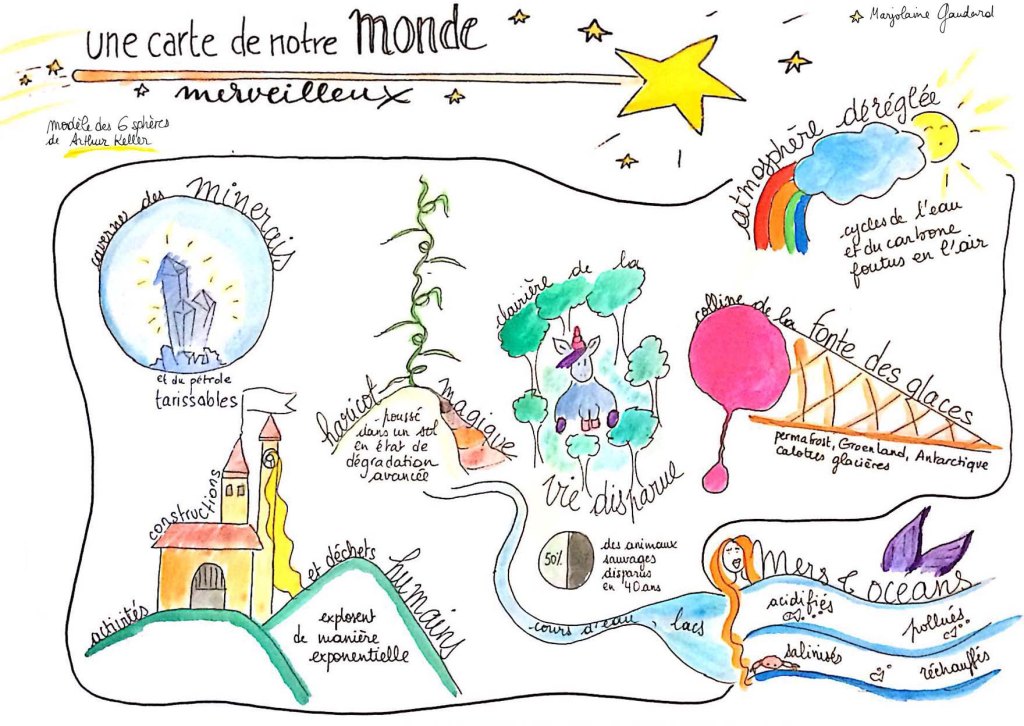 une carte de notre monde
merveilleux
Marjolaine Gauderd
modèle des 6 sphères
de Arthur Keller
atmosphère déréglée
cycles de l'eau
et du carbone
foutus en l'air
caverne des minerais
et du pétrole
tarissables
haricot magique
poussé
dans un sol
en état de
dégradation
avancée
clairière de la
vie disparue
50%
des animaux
sauvages
disparus
en 40 ans
colline de la fonte des glaces
permafrost, Groenland, Antarctique
calottes glacières
constructions
activités
et déchets
humains
explosent
de manière
exponentielle
cours d'eau, lacs
Mers & océans
acidifiés
pollués
salinisés
réchauffés